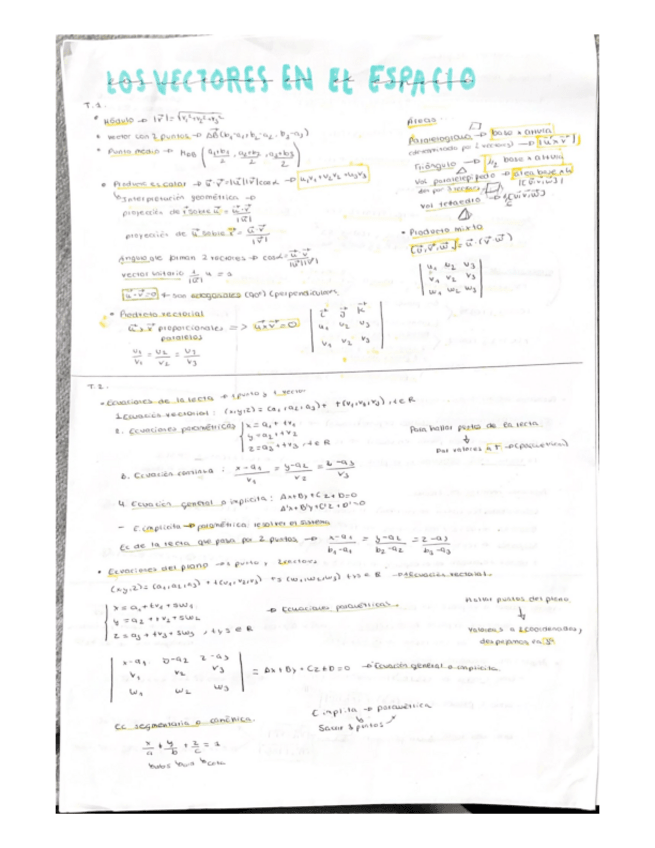 LOS VECTORES EN EL ESPACIO
T.1.
• Módulo → |v⃗| = √v₁²+v₂²+v₃²
• Vector con 2 puntos → AB⃗ (b₁-a₁, b₂-a₂, b₃-a₃)
• Punto medio → M_AB (a₁+b₁/2, a₂+b₂/2, a₃+b₃/2)
• Producto escalar → u⃗·v⃗ = |u⃗||v⃗|cosα → u₁v₁+u₂v₂+u₃v₃
↳ Interpretación geométrica →
proyección de v⃗ sobre u⃗ = u⃗·v⃗/|u⃗|
proyección de u⃗ sobre v⃗ = u⃗·v⃗/|v⃗|
Ángulo que forman 2 vectores → cosα = u⃗·v⃗/|u⃗||v⃗|
vector unitario 1/|v⃗|
u⃗·v⃗=0 son ortogonales (90º) (perpendiculares)
• Producto vectorial
u⃗ y v⃗ proporcionales => u⃗xv⃗=0
paralelos
i⃗ j⃗ k⃗
u₁ u₂ u₃
v₁ v₂ v₃
Áreas
Paralelogramo → base x altura
→ |u⃗xv⃗|
Triángulo → 1/2 base x altura
Vol paralelepípedo → área base x h
|[u⃗,v⃗,w⃗]|
Vol tetraedro → [u⃗,v⃗,w⃗]
• Producto mixto
[u⃗,v⃗,w⃗] = u⃗·(v⃗ w⃗)
u₁ u₂ u₃
v₁ v₂ v₃
w₁ w₂ w₃
T.2.
• Ecuaciones de la recta → 1 punto y 1 vector
1. Ecuación vectorial: (x,y,z) = (a₁,a₂,a₃) + t(v₁,v₂,v₃), t∈R
2. Ecuaciones paramétricas
x = a₁ + tv₁
y = a₂ + tv₂
z = a₃ + tv₃, t∈R
Para hallar puntos de la recta
↓
Dar valores a t → (paramétrica)
3. Ecuación continua: x-a₁/v₁ = y-a₂/v₂ = z-a₃/v₃
4. Ecuación general o implícita: Ax+By+Cz+D=0
A'x+B'y+C'z+D'=0
- E. implícita → paramétrica: resolver el sistema
Ec de la recta que pasa por 2 puntos → x-a₁/b₁-a₁ = y-a₂/b₂-a₂ = z-a₃/b₃-a₃
• Ecuaciones del plano → 1 punto y 2 vectores
(x,y,z) = (a₁,a₂,a₃) + t(v₁,v₂,v₃) + s(w₁,w₂,w₃) t,s∈R → Ecuación vectorial.
x = a₁ + tv₁ + sw₁
y = a₂ + tv₂ + sw₂
z = a₃ + tv₃ + sw₃, t,s∈R
→ Ecuaciones paramétricas.
Hallar puntos del plano
↓
valores a 2 coordenadas y
despejamos la 3ª
x-a₁ y-a₂ z-a₃
v₁ v₂ v₃
w₁ w₂ w₃
= Ax+By+Cz+D=0 → Ecuación general o implícita
E. implícita → paramétrica
Sacar 3 puntos
Ec segmentaria o canónica.
x/a + y/b + z/c = 1